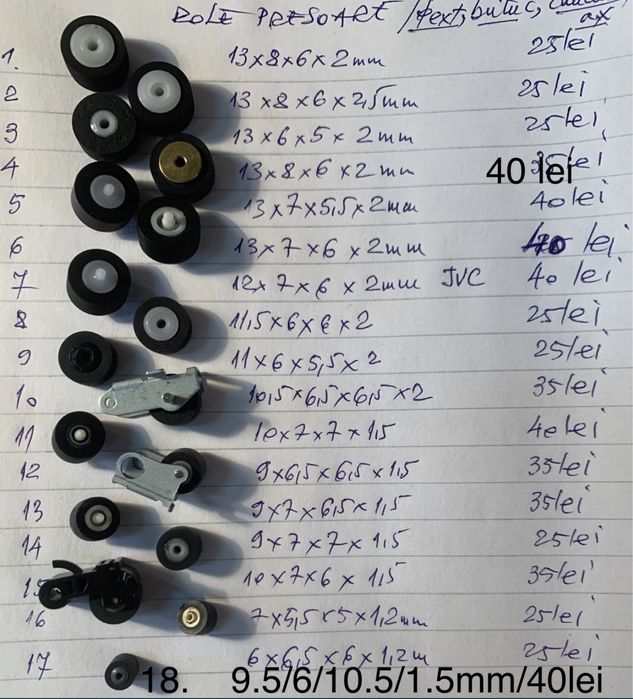 ROLE PRESOARE /(ext, butuc,
ax
1. 13x8x6x2mm 25lei
2 13x8x6x2,5mm 25lei
3 13x6x5x2mm 25lei
4 13x8x6x2mm 40 lei
5 13x7x5,5x2mm 40lei
6 13x7x6x2mm 40 lei
7 12x7x6x2mm JVC 40 lei
8 11,5x6x6x2 25lei
9 11x6x5,5x2 25lei
10 10,5x6,5x6,5x2 35lei
11 10x7x7x1,5 40lei
12 9x6,5x6,5x1,5 35lei
13 9x7x6,5x1,5 35lei
14 9x7x7x1,5 25lei
15 10x7x6x1,5 35lei
16 7x5,5x5x1,2mm 25lei
17 6x6,5x6x1,2m 25lei
18. 9.5/6/10.5/1.5mm/40lei